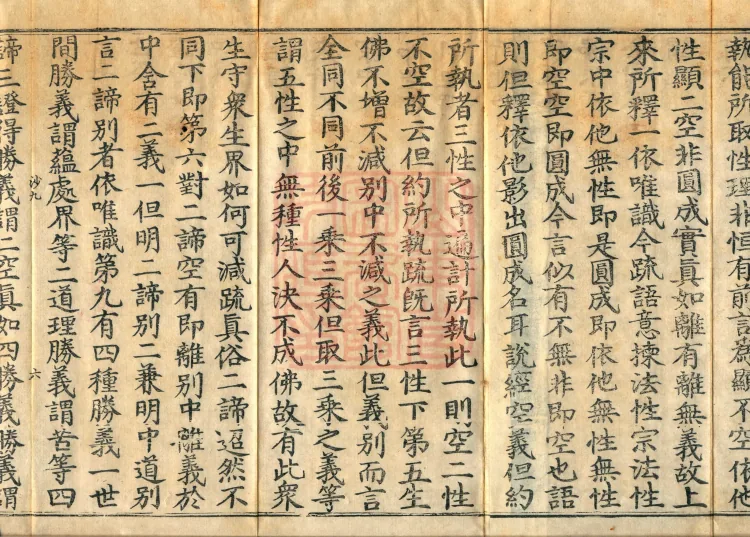 執能所取性理非恒有前言爲顯不空依他
性顯二空非圓成實真如離有離無義故上
來所釋一依唯識今疏語意揀法性宗法性
宗中依他無性即是圓成即依他無性無性
即空空即圓成今言似有不無非即空也語
則但釋依他影出圓成名耳說經空義但約
所執者三性之中遍計所執此一則空二性
不空故云但約所執疏既言三性下第五生
佛不增不減別中不減之義此但義別而言
全同不同前後一乘三乘但取三乘之義等
謂五性之中無種性人決不成佛故有此衆
生守衆生界如何可減疏真俗二諦迢然不
同下即第六對二諦空有即離別中離義於
中含有二義一但明二諦別二兼明中道別
言二諦別者依唯識第九有四種勝義一世
間勝義謂蘊處界等二道理勝義謂苦等四
沙九 六
諦三證得勝義謂二空真如四勝義勝義謂